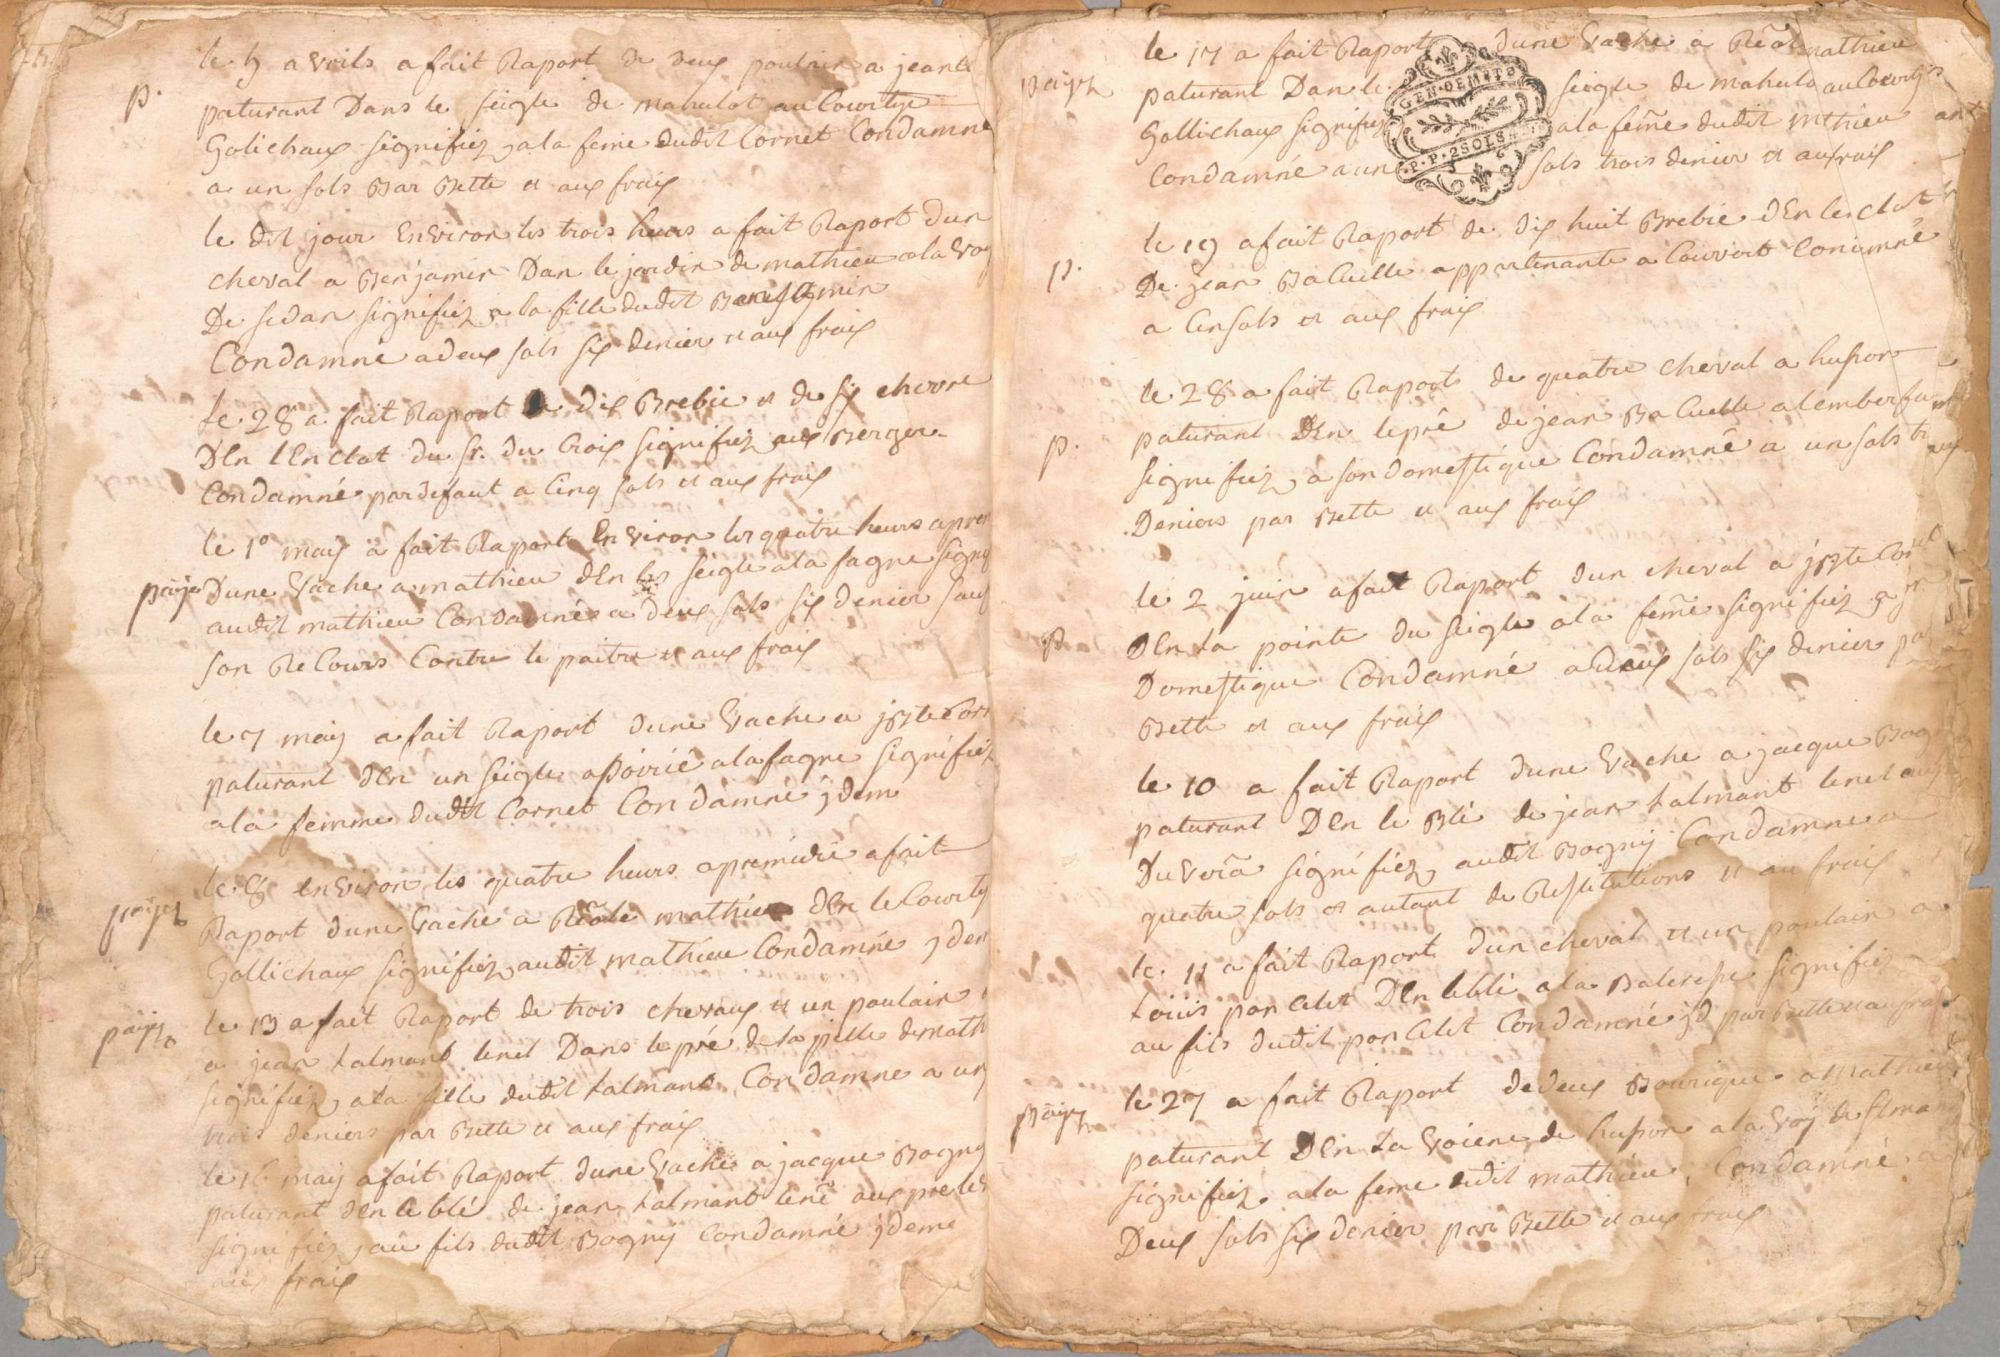 le 5 avrils a fait Raport de deux poulain a jean
p.
paturant Dans le seigle de mahulot au Courtye
Golichaux signifiez a la feme dudit Cornet Condamne
a un sols par Bette et aux frais
le dit jour Environ les trois heurs a fait Raport dun
cheval a Benjamin Dan le jardin de mathieu a la voy
De sedan signifiez a la fille dudit Benjamin
Condamné a deux sols six denier et aux frais
Le 28 a fait Raport de dix Brebie et de six chevre
Den lEnclot du Sr. du Croix signifiez aux Berger
Condamné par defaut a Cinq sols et aux frais
le 1o may a fait Raport Environ les quatre heurs apres
paye
Dune vache a mathieu den les seigle a la fagne signi
audit mathieu Condamnés a deux sols six denier sauf
son ReCours Contre le paitre et aux frais
le 7 may a fait Raport dune vache a jpte Cor
paturant den un seigle a la fagne signifiez
a la femme dudit Cornet Condamné jdem
le 8 environ les quatre heurs apremidié a fait
payez
Raport dune vache a mathieu den le Courty
Gollichaux signifiez audit mathieu Condamné jdem
le 13 a fait Raport de trois chevaux et un poulain
payez
a jean Lalmant lenel Dans le pré de la fille de math
signifiez a la fille dudit Lalmant Condamne a un
trois deniers par Bette et aux frais
le 16 may a fait Raport dune vache a jacque Bogny
paturant den le blé de jean Lalmant lené aux pre les
signifiez au fils dudit Bogny Condamné jdeme
aux frais
le 17 a fait Raport dune vache a mathieu
payez
paturant Dan le seigle de mahulo au Courtys
Gollichaux signifiez a la feme dudit mthieu
Condamné a un sols trois denier et aux frais
GEN. DE METZ
P.P. 2 SOLS
le 19 a fait Raport de dix huit Brebie dEn le clot
p.
De jean BaCuelle appartenante a Couvert Conamné
a Cin sols et aux frais
le 28 a fait Raport de quatre cheval a husson
p.
paturant dEn le pré de jean BaCuelle
signifiez a son domestique Condamné a un sols tr
Deniers par Bette et aux frais
le 2 juin a fait Raport dun cheval a jpte Cor
p.
DEn La pointe du seigle a la feme signifiez a
Domestique Condamné a Deux sols six denier pa
Bette et aux frais
le 10 a fait Raport dune vache a jacque Bog
paturant DEn le Blé de jean Lalmant lenel aux
signifiez audit Bogny Condamne a
quatre sols et autant de Restitutions et au frais
le 11 a fait Raport dun cheval et un poulain a
Louis ponCelet DEn le blé a la signifiez
au fils dudit ponCelet Condamné jd par Bette et au frais
le 27 a fait Raport de deux Bourique a Mathieu
payez
paturant DEn La de husson a la voy de
signifiez a la feme dudit mathieu Condamné a
Deux sols six denier par Bette et aux frais